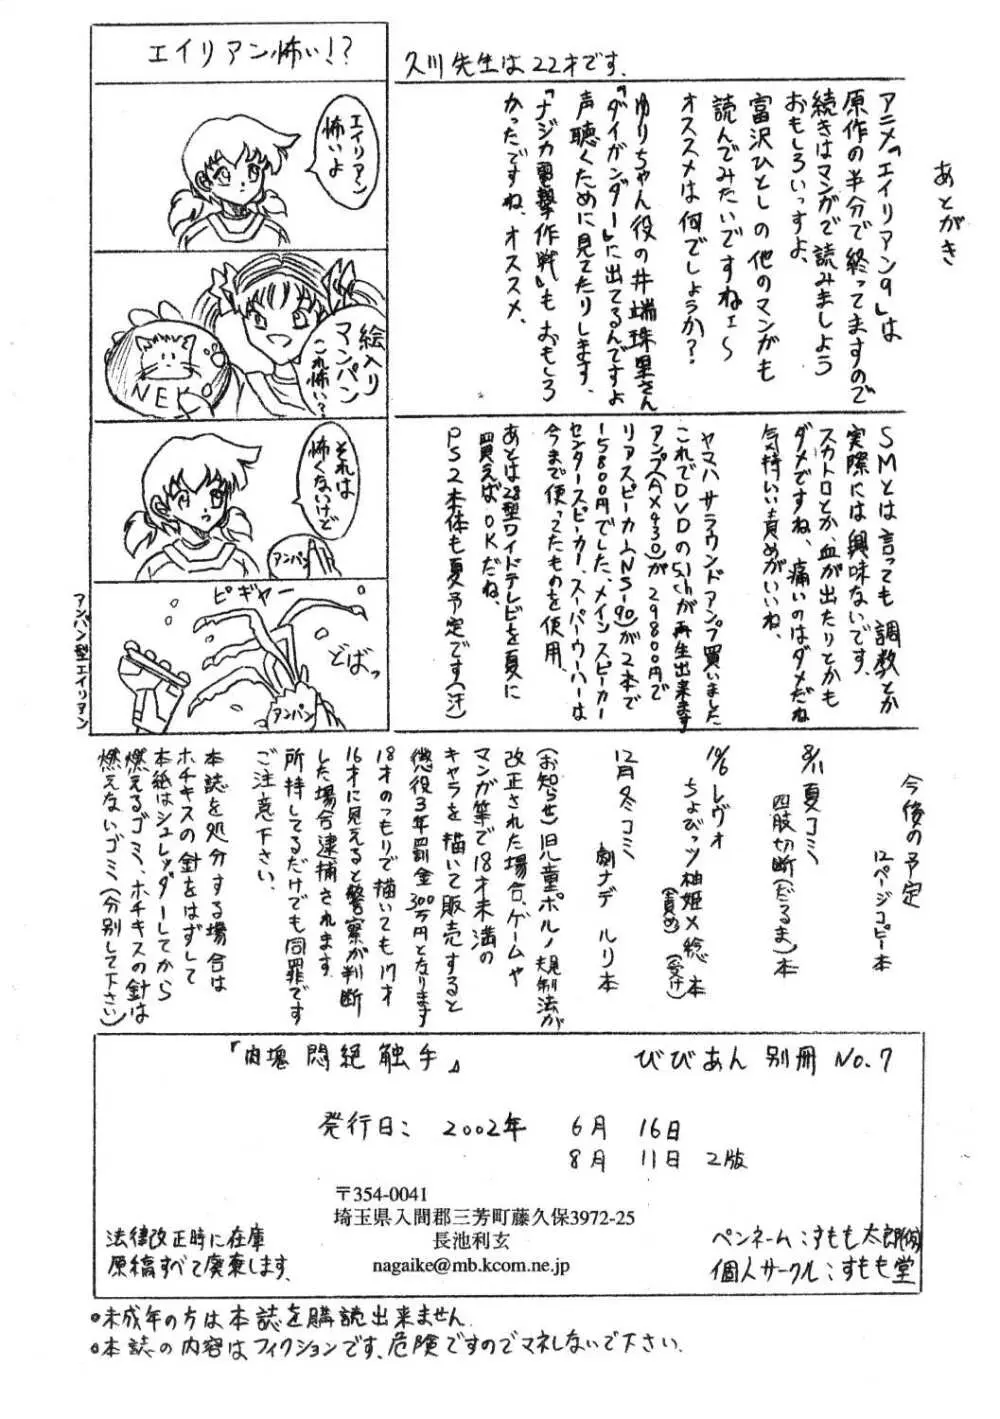 エイリアン怖い!?
エイリアン
怖いよ
絵入り
マンパン
これ怖い?
NEK
それは
怖くないけど
アンパン
ピギャー
どばっ
アンパン
アンパン型エイリアン
久川先生は22才です.
あとがき
アニメ『エイリアン9』は
原作の半分で終ってますので
続きはマンガで読みましょう
おもしろいっすよ、
富沢ひとしの他のマンガも
読んでみたいですねェ〜
オススメは何でしょうか?
ゆりちゃん役の井端珠里さん
『ダイガンダー』に出てるんですよ
声聴くために見てたりします、
『ナジカ電撃作戦』もおもしろ
かったですね、オススメ、
SMとは言っても調教とか
実際には興味ないです、
スカトロとか、血が出たりとかも
ダメですね、痛いのはダメだね
気持いい責めがいいね、
ヤマハサラウンドアンプ買いました
これでDVDの5.1chが再生出来ます
アンプ(AX430)が29800円で
リアスピーカー(NS-90)が2本で
15800円でした、メインスピーカー
センタースピーカー、スーパーウーハーは
今まで使ってたものを使用、
あとは28型ワイドテレビを夏に
買えばOKだね、
PS2本体も夏予定です(汗)
今後の予定
12ページコピー本
8/11 夏コミ
四肢切断(だるま)本
10/6 レヴォ
ちょびっツ柚姫×稔本
(責め) (受け)
12月冬コミ
劇ナデ ルリ本
(お知らせ)旧児童ポルノ規制法が
改正された場合、ゲームや
マンガ等で18才未満の
キャラを描いて販売すると
懲役3年罰金300万円となります
18才のつもりで描いても17才
16才に見えると警察が判断
した場合逮捕されます
所持してるだけでも同罪です
ご注意下さい.
本誌を処分する場合は
ホチキスの針をはずして
本紙はシュレッダーしてから
燃えるゴミ、ホチキスの針は
燃えないゴミ(分別して下さい)
『肉塊悶絶触手』 びびあん別冊 No.7
発行日: 2002年 6月 16日
8月 11日 2版
〒354-0041
埼玉県入間郡三芳町藤久保3972-25
長池利玄
nagaike@mb.kcom.ne.jp
法律改正時に在庫
原稿すべて廃棄します.
ペンネーム:すもも太郎(仮)
個人サークル:すもも堂
●未成年の方は本誌を購読出来ません.
●本誌の内容はフィクションです、危険ですのでマネしないで下さい.